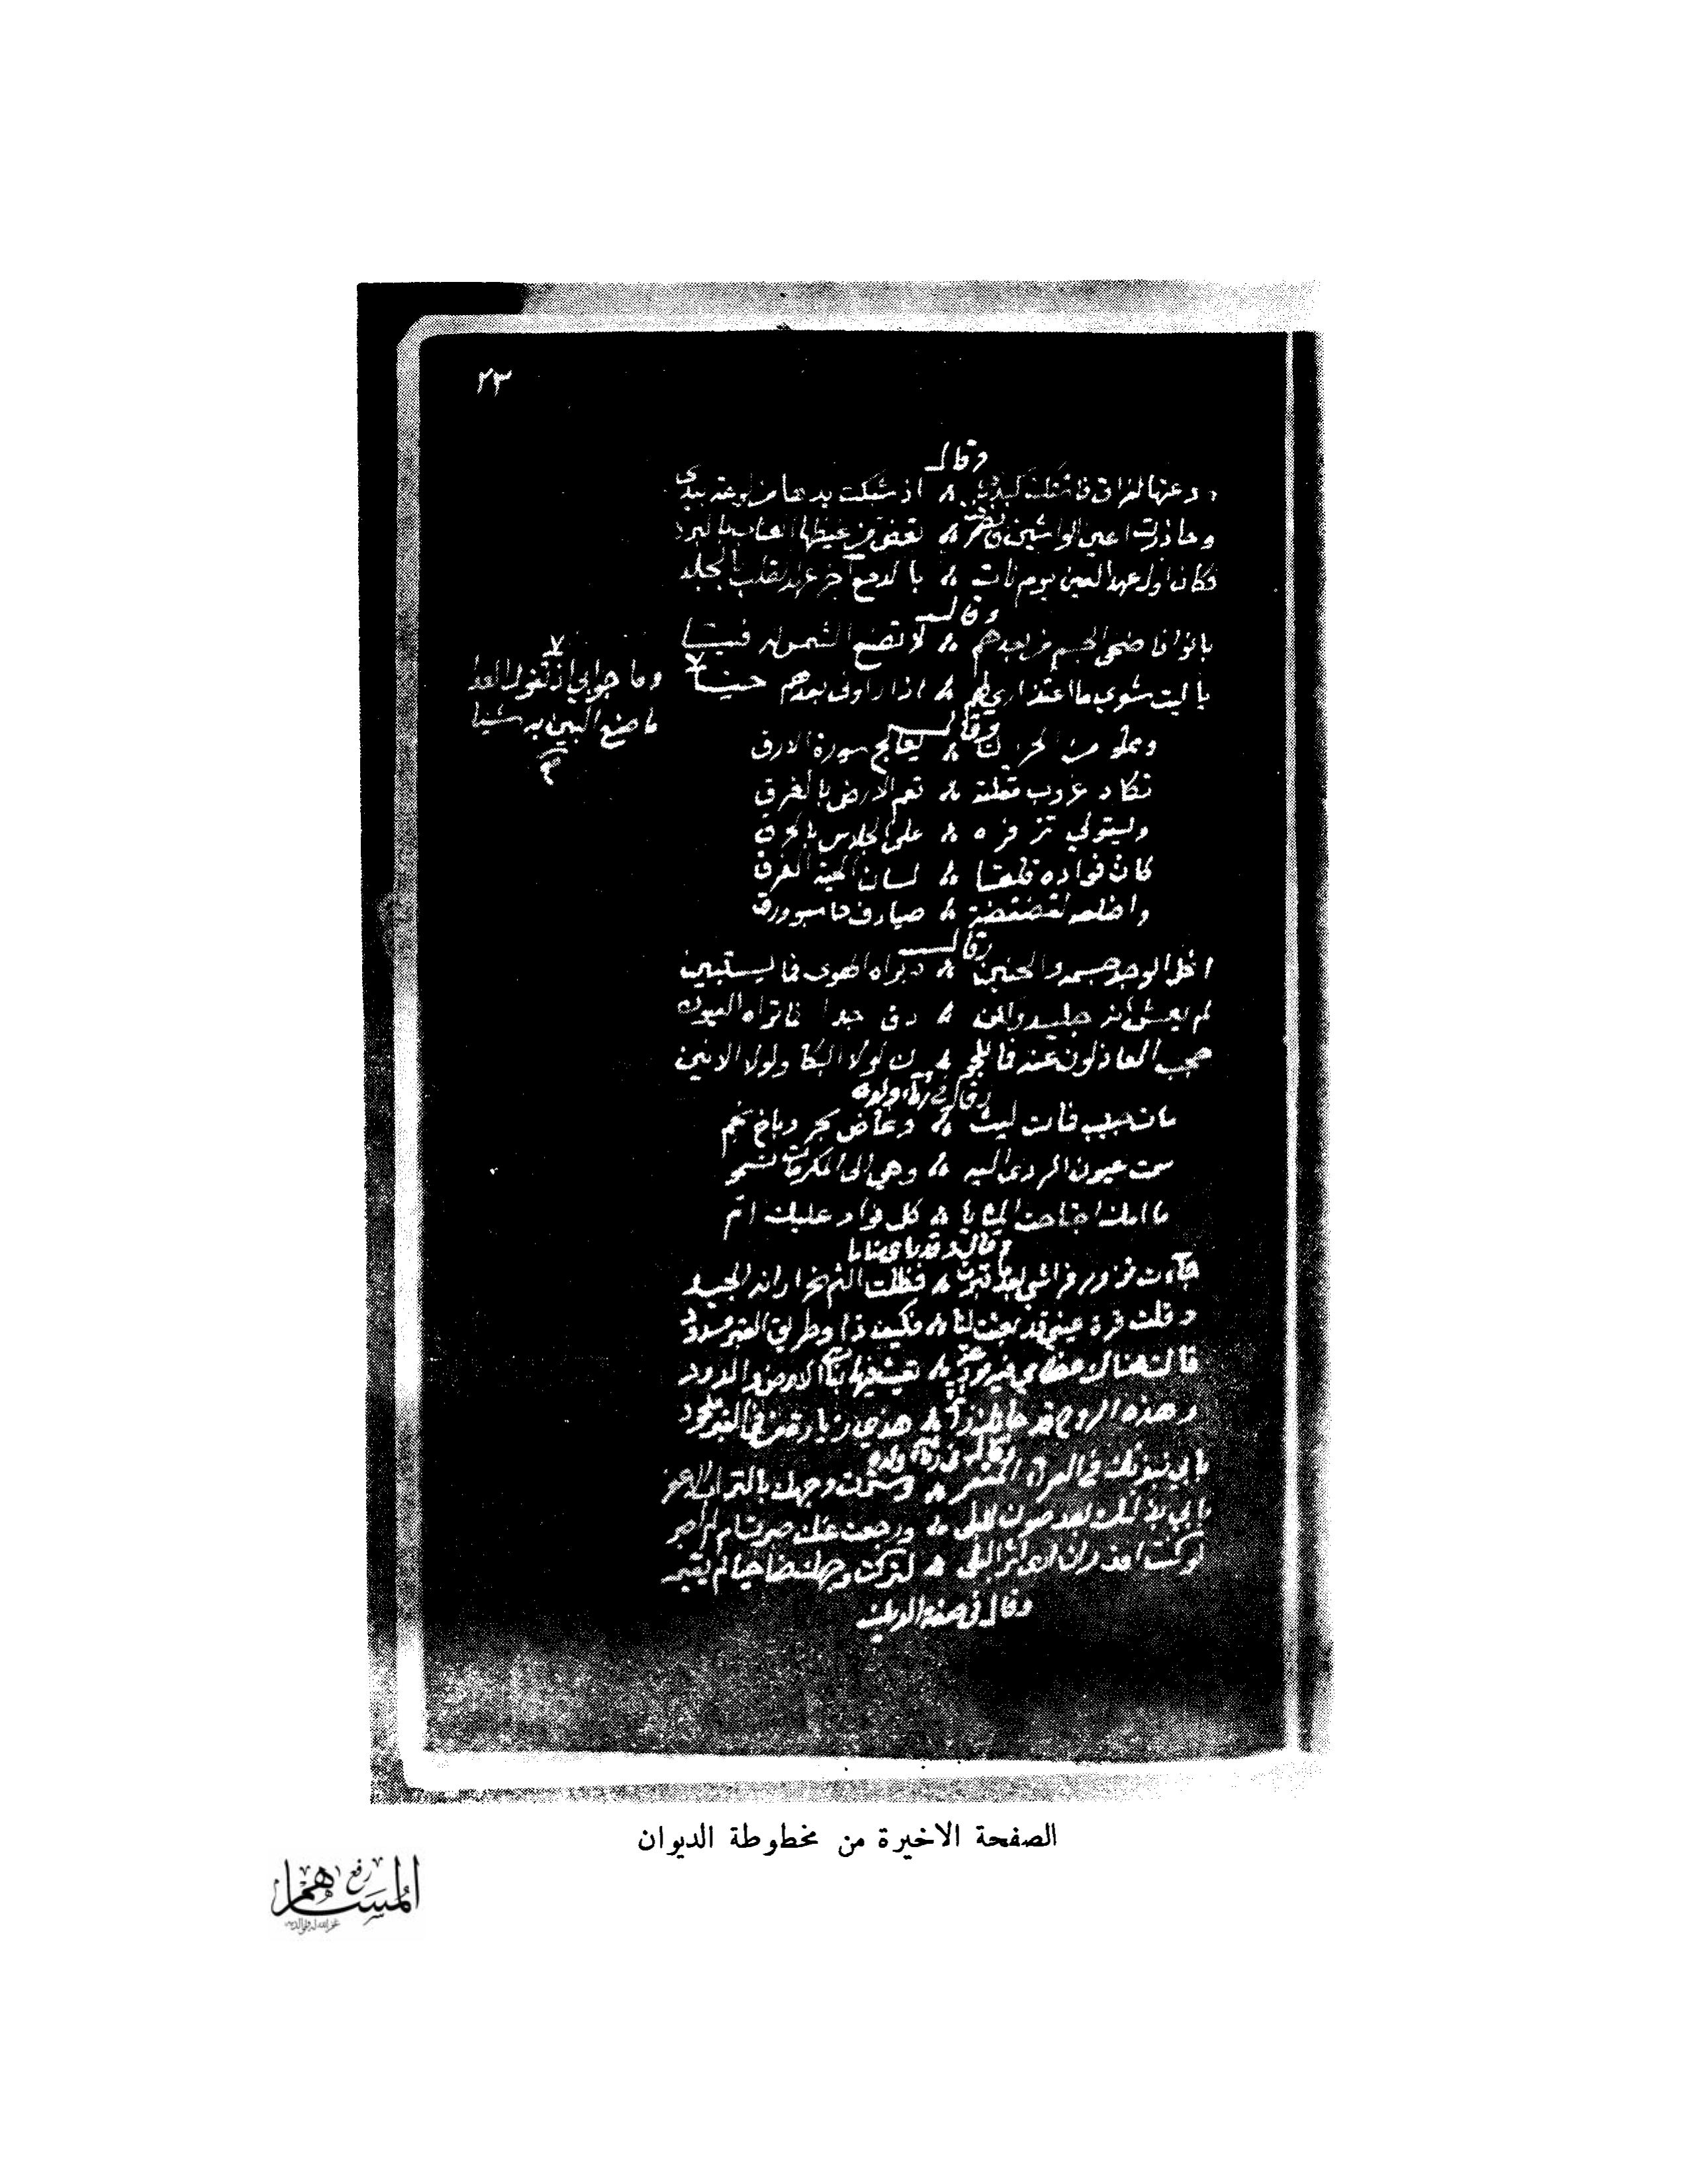 ٢٣
وقال
ودعتها لفراق فاشتكت كبدي اذ شبكت يدها من لوعة بيدي
وحاذرت اعين الواشين فانصرفت تعض من غيظها العناب بالبرد
فكان اول عهد العين يوم نأت بالدمع آخر عهد القلب بالجلد
وقال
بانوا فاضحى الجسم من بعدهم لا تصنع الشمس له فيئا
يا ليت شعري ما اعتذاري لهم اذا راوني بعدهم حيا
وما جوابي اذ تقول العدا
ما صنع البين به شيئا
صح
وقال
من الحرق يعالج سورة الارق
تكاد غروب مقلته تعم الارض بالغرق
تزفره على الجلاس بالحرق
كان فواده قلقا لسان الحية الفرق
واضلعه لقضقضة صيادف حاسبو ورق
وقال
انحل الوجد جسمه والحنين وبراه الهوى فما يستبين
لم يعش انه جليد ولكن دق جدا فما تراه العيون
حجب العاذلون عنه فا ن لولا البكا ولولا الانين
وقال في رثاء ولده
مات حبيب فمات ليث وغاض بحر وباخ نجم
سمت عيون الردى اليه وهي الى المكرمات تسمو
ما امك اجتاحت المنايا كل فواد عليك ام
وقال وقد راى مناما
جاءت تزور فراشي بعد ما قبرت فظلت الثم نحرا زانه الجيد
وقلت قرة عيني قد بعثت لنا فكيف ذا وطريق القبر مسدود
قالت هناك عظامي فيه مودعة تعيث فيها بنات الارض والدود
وهذه الروح قد جاءتك زائرة هذي زيارة من في القبر ملحود
وقال في رثاء ولده
بابي نبذتك في العراء المقفر وسترت وجهك بالتراب الاعفر
بابي بذلتك بعد صون للبلى ورجعت عنك صبرت ام لم اصبر
لو كنت اقدر ان ارى اثر البلى لتركت وجهك ضاحيا لم يقبر
وقال في صفة الديك
الصفحة الاخيرة من مخطوطة الديوان
رفع
المساهم
غفر الله له ولوالديه